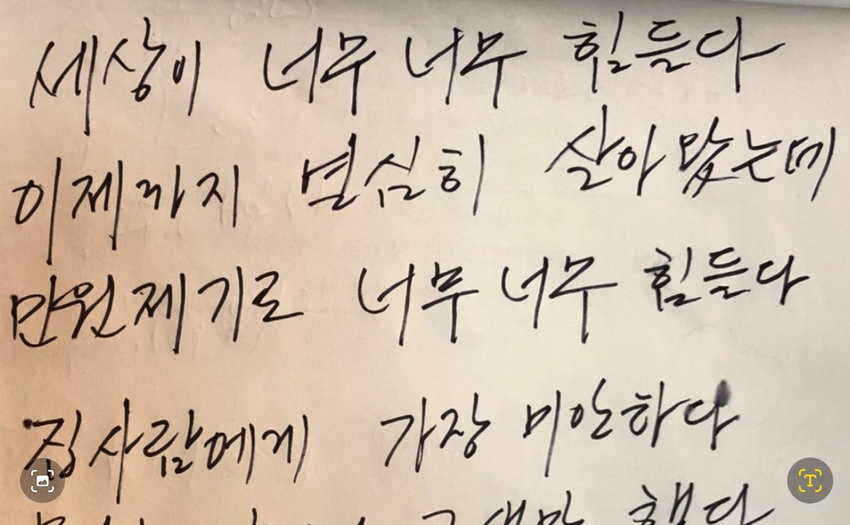 세상이 너무 너무 힘들다
이제까지 열심히 살아 왔는데
만원제기로 너무 너무 힘들다
집사람에게 가장 미안하다